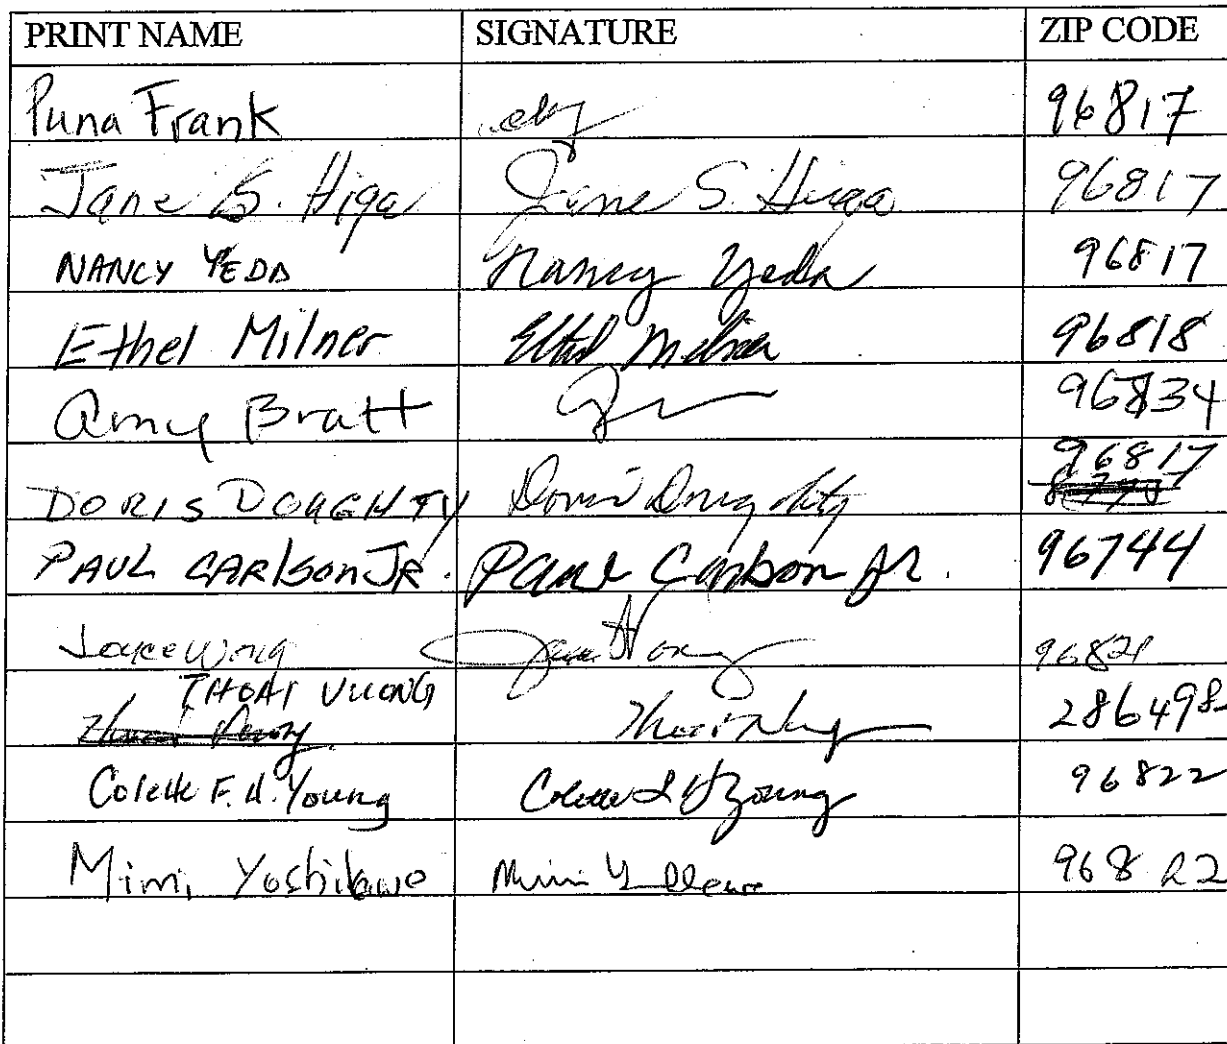 PRINT NAME SIGNATURE ZIP CODE
Puna Frank 96817
Jane S. Higa Jane S. Higa 96817
NANCY YEDA Nancy Yeda 96817
Ethel Milner Ethel Milner 96818
Amy Bratt 96834
DORIS DOUGHTY Doris Doughty 96817
PAUL CARLSON JR. Paul Carlson Jr. 96744
Joyce Wong Joyce Wong 96821
THOAI VUONG 286498
Colette F. H. Young Colette F H Young 96822
Mimi Yoshikawa Mimi 96822